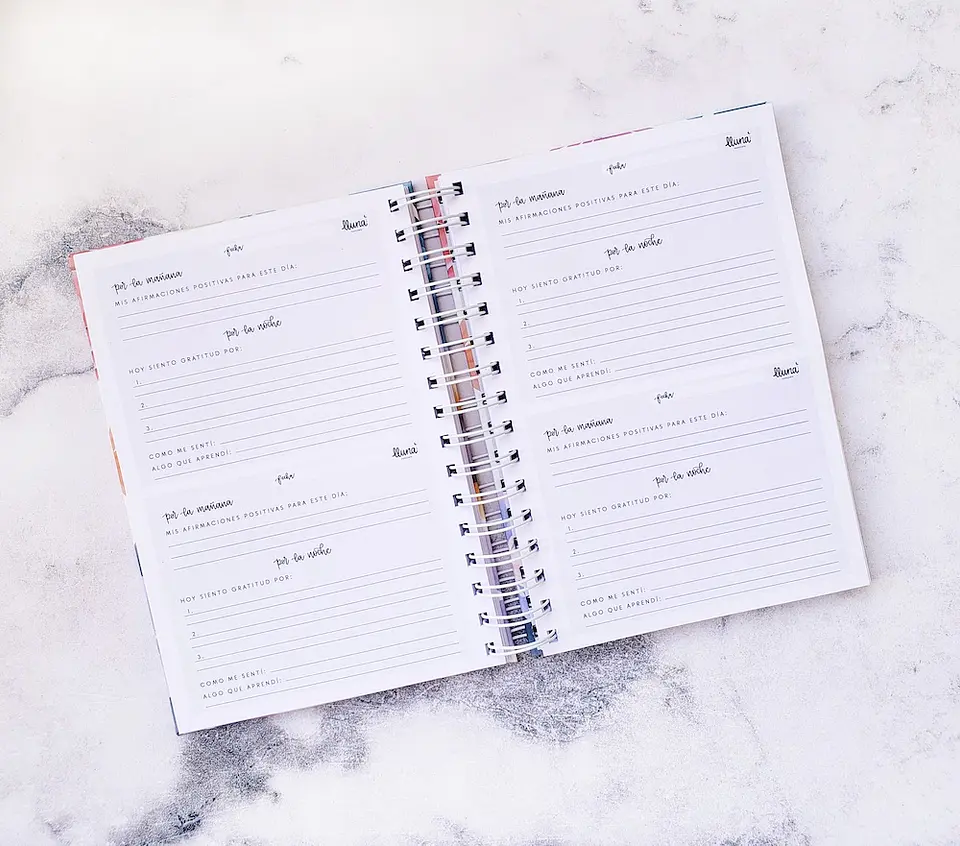 lluna
fecha
por la mañana
MIS AFIRMACIONES POSITIVAS PARA ESTE DÍA:
por la noche
HOY SIENTO GRATITUD POR:
1.
2.
3.
COMO ME SENTÍ:
ALGO QUE APRENDÍ:
lluna
fecha
por la mañana
MIS AFIRMACIONES POSITIVAS PARA ESTE DÍA:
por la noche
HOY SIENTO GRATITUD POR:
1.
2.
3.
COMO ME SENTÍ:
ALGO QUE APRENDÍ:
lluna
fecha
por la mañana
MIS AFIRMACIONES POSITIVAS PARA ESTE DÍA:
por la noche
HOY SIENTO GRATITUD POR:
1.
2.
3.
COMO ME SENTÍ:
ALGO QUE APRENDÍ:
lluna
fecha
por la mañana
MIS AFIRMACIONES POSITIVAS PARA ESTE DÍA:
por la noche
HOY SIENTO GRATITUD POR:
1.
2.
3.
COMO ME SENTÍ:
ALGO QUE APRENDÍ: